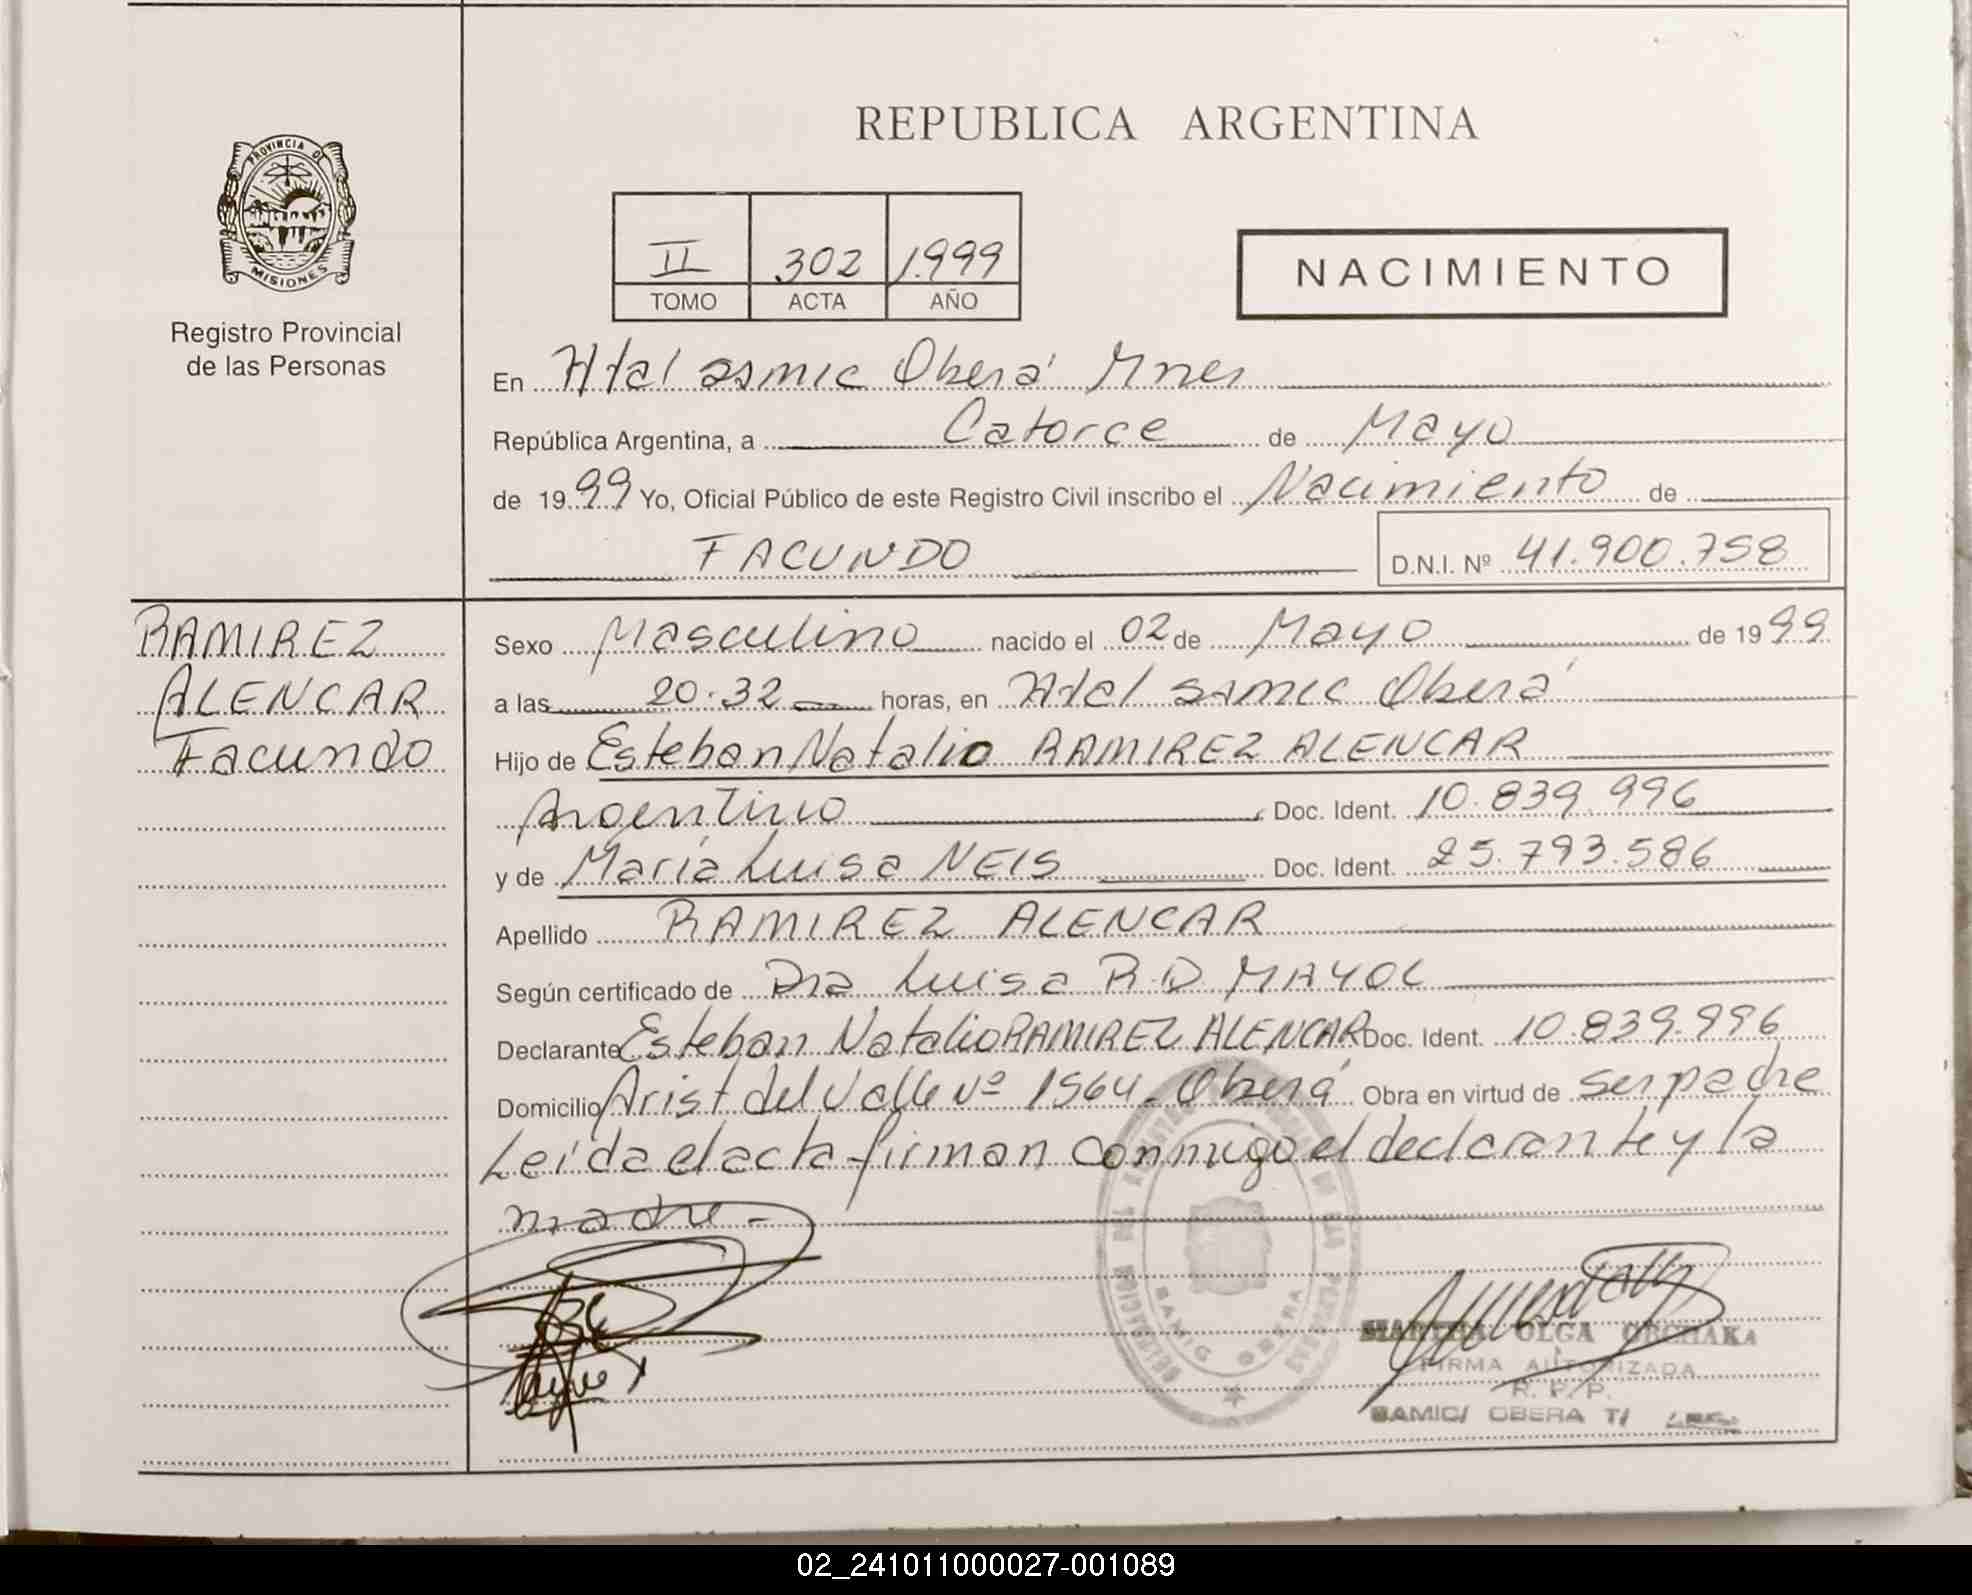 REPUBLICA ARGENTINA
PROVINCIA DE
MISIONES
Registro Provincial
de las Personas
II 302 1999
TOMO ACTA AÑO
NACIMIENTO
En Htal samic Oberá Mnes
República Argentina, a Catorce de Mayo
de 1999 Yo, Oficial Público de este Registro Civil inscribo el Nacimiento de
FACUNDO
D.N.I. Nº 41.900.758
RAMIREZ
ALENCAR
Facundo
Sexo Masculino nacido el 02 de Mayo de 1999
a las 20.32 horas, en Htal samic Oberá
Hijo de Esteban Natalio RAMIREZ ALENCAR
Argentino Doc. Ident. 10.839.996
y de María Luisa NEIS Doc. Ident. 25.793.586
Apellido RAMIREZ ALENCAR
Según certificado de Dra Luisa R.D. MAYOL
Declarante Esteban Natalio RAMIREZ ALENCAR Doc. Ident. 10.839.996
Domicilio Arist del Valle Nº 1564. Oberá Obra en virtud de ser padre
Leída el acta firman conmigo el declarante y la
madre.-
SAMIC OBERA
MARTHA OLGA OBCHAKA
FIRMA AUTORIZADA
R. P. P.
SAMIC/ OBERA T/
02_241011000027-001089